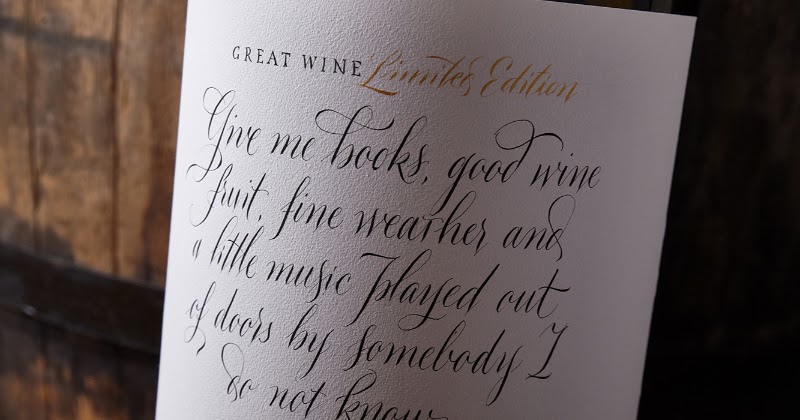 GREAT WINE Limited Edition
Give me books, good wine
fruit, fine weather and
a little music played out
of doors by somebody I
do not know